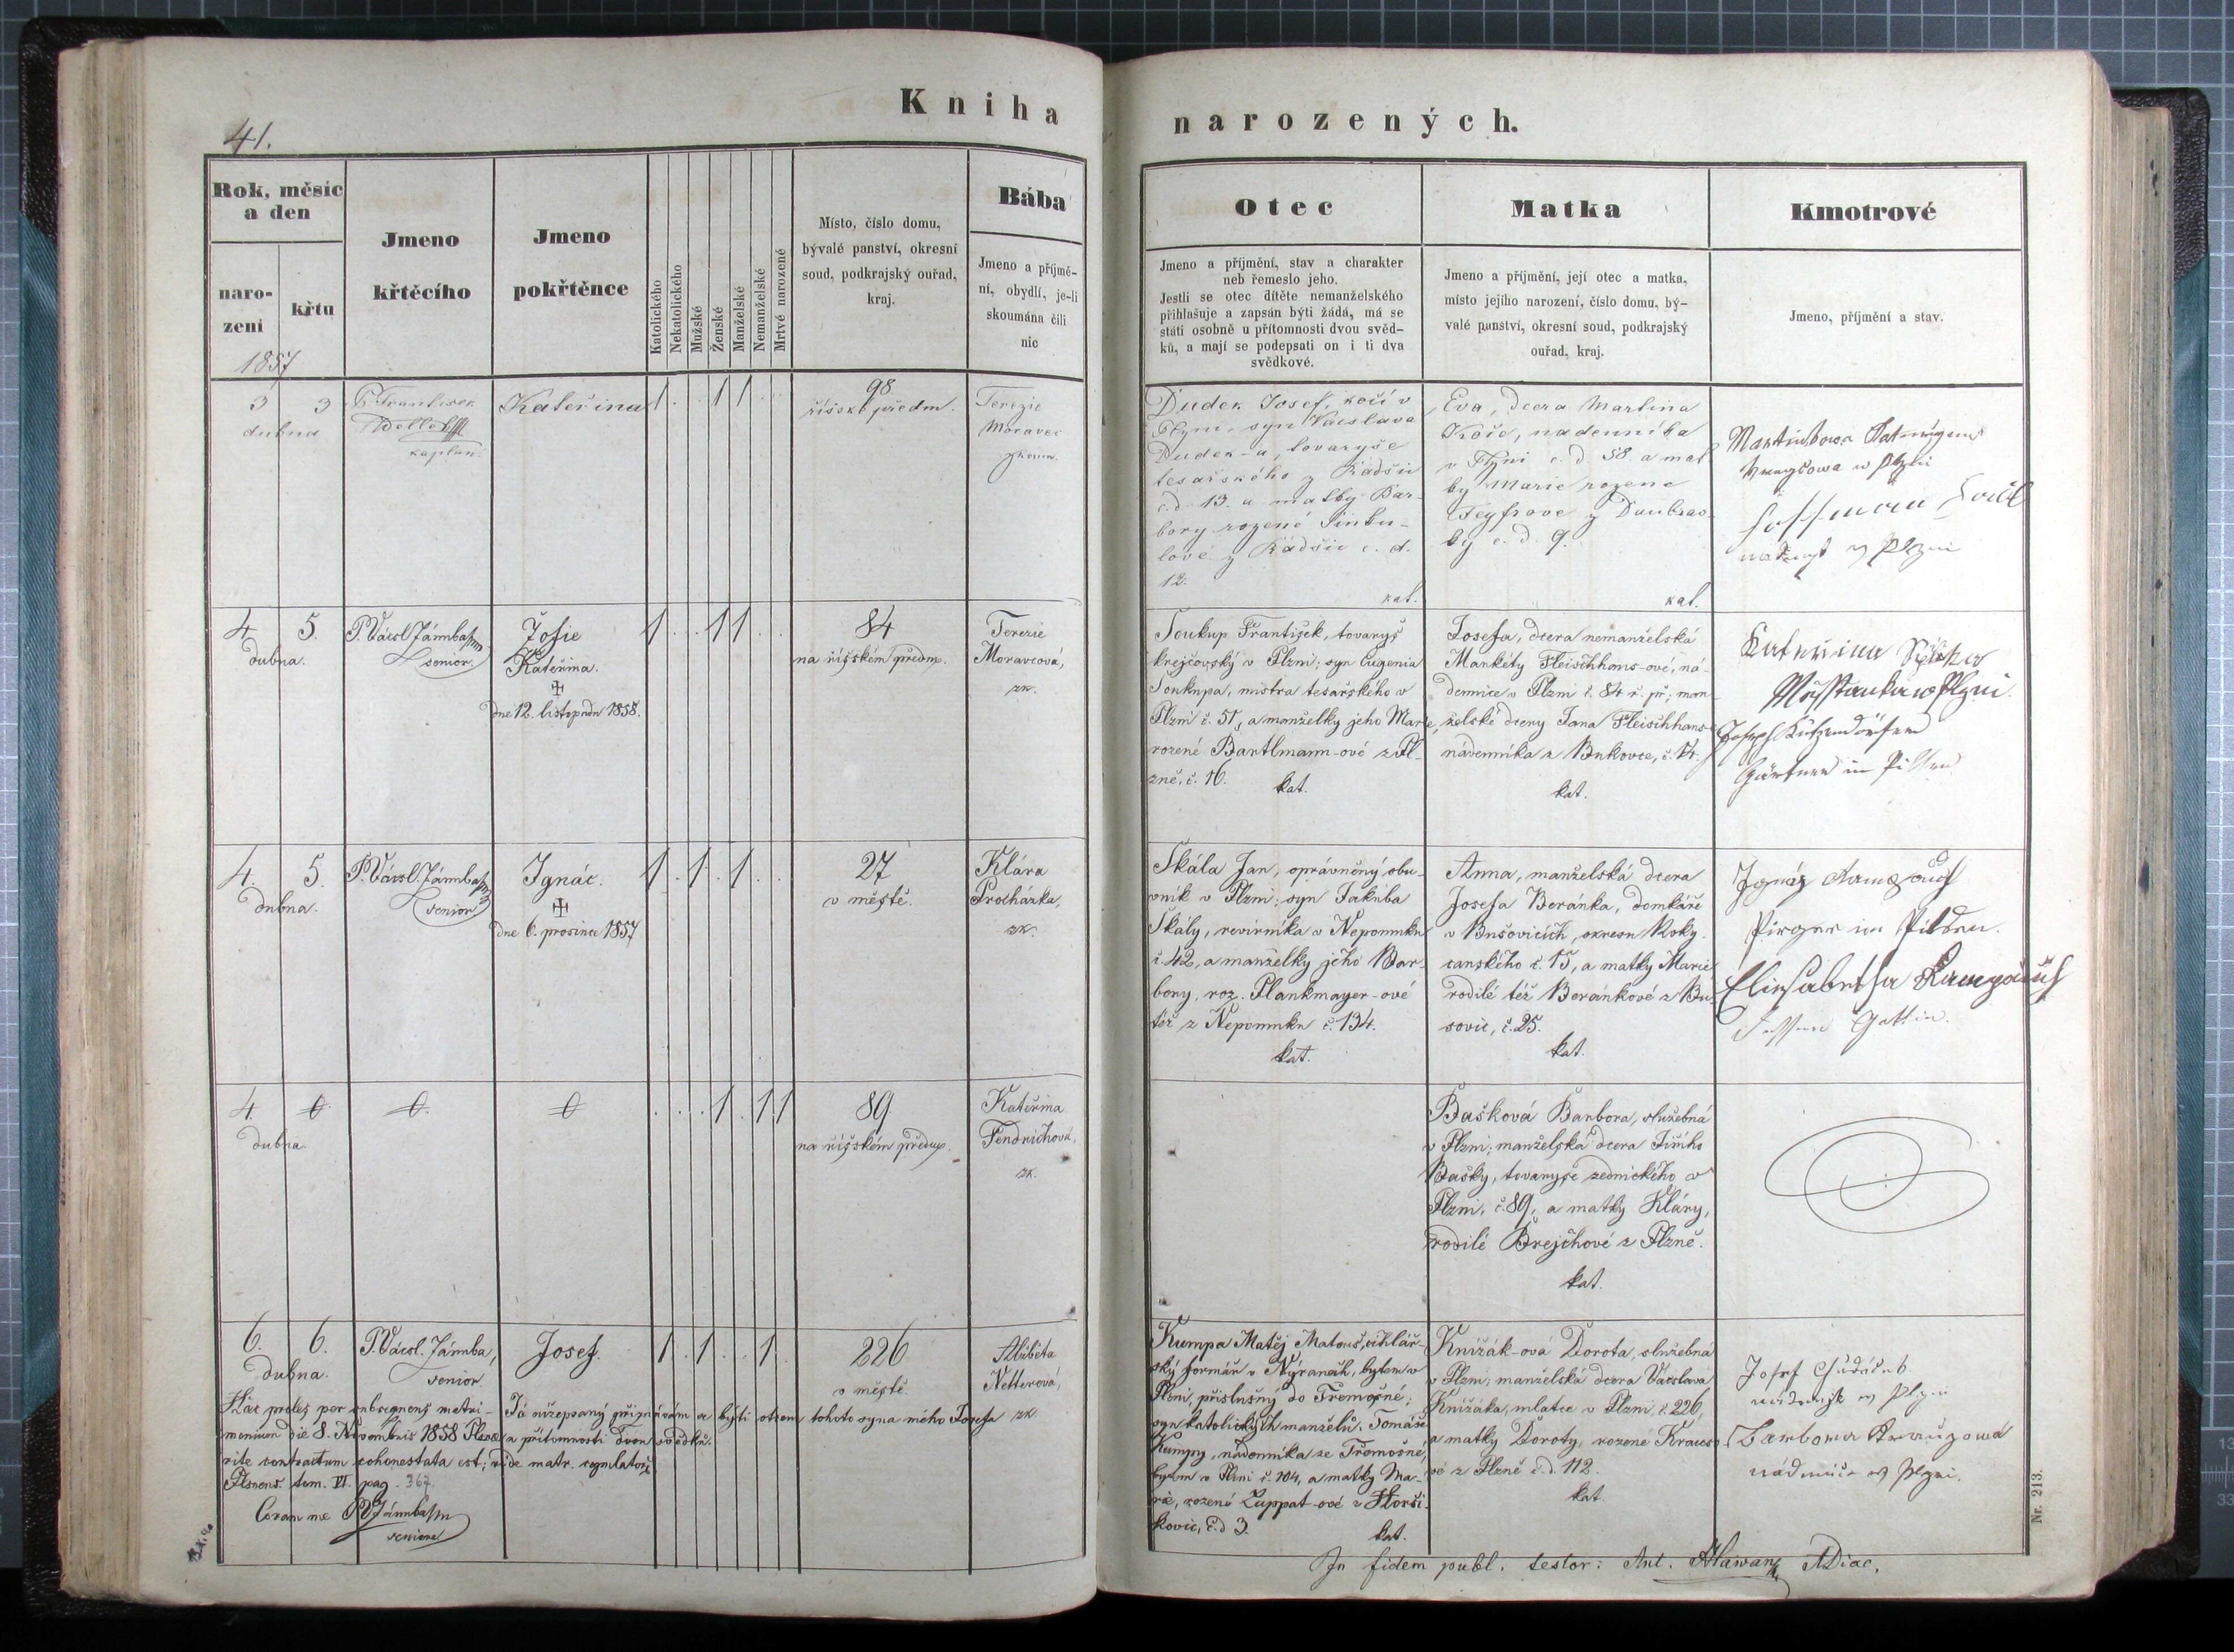 Kniha
narozených.
41.
Rok, měsíc
a den
naro-
zení
křtu
1857
Jmeno
křtěcího
Jmeno
pokřtěnce
Katolického
Nekatolického
Mužské
Ženské
Manželské
Nemanželské
Mrtvě narozené
Místo, číslo domu,
bývalé panství, okresní
soud, podkrajský ouřad,
kraj.
Bába
Jmeno a příjmě-
ní, obydlí, je-li
skoumána čili
nic
Otec
Jmeno a příjmění, stav a charakter
neb řemeslo jeho.
Jestli se otec dítěte nemanželského
přihlašuje a zapsán býti žádá, má se
státi osobně u přítomnosti dvou svěd-
ků, a mají se podepsati on i ti dva
svědkové.
Matka
Jmeno a příjmění, její otec a matka,
místo jejího narození, číslo domu, bý-
valé panství, okresní soud, podkrajský
ouřad, kraj.
Kmotrové
Jmeno, příjmění a stav.
3 3
dubna
P. František
kaplan.
Kateřina
1 . . 1 1 . .
98
říšské předm.
Terezie
Moravec
zkouš.
Dudek Josef, kočí v
Plzni, syn Václava
Dudek-a, tovaryše
tesařského z Rádčic
č.d. 13. a matky Bar-
bory rozené Šimku-
lové z Rádčic č. d.
12.
kat.
Eva, dcera Martina
Koče, nadenníka
v Plzni č. d. 58. a mat
ky Marie rozené
z Doubrav-
ky č. d. 9.
kat.
w Plzni
w Plzni
4. 5.
dubna.
P. Václ. Jámba
senior.
Žofie
Kateřina.
dne 12. listopadu 1858.
1 . . 1 1 . .
84
na říšském předm.
Terezie
Moravcová,
zk.
Soukup František, tovaryš
krejčovský v Plzni; syn Eugenia
Soukupa, mistra tesařského v
Plzni č. 51, a manželky jeho Marie,
rozené Bartlmann-ové z Pl-
zně, č. 16.
kat.
Josefa, dcera nemanželská
Markéty Fleischhans-ové, ná-
dennice v Plzni č. 84 ř. př; man
želské dcery Jana Fleischhans
nádenníka z Bukovce, č. 14.
kat.
Kateřina
Měsstanka w Plzni.
Joseph
Gärtner in Pilsen
4. 5.
dubna.
P. Václ. Jámba
senior
Ignác.
dne 6. prosince 1857
1 . 1 . 1 . .
27
v městě.
Klára
Procházka,
zk.
Skála Jan, oprávněný obu-
vník v Plzni; syn Jakuba
Skály, revírníka v Nepomuku
č. 42, a manželky jeho Bar-
bory, roz. Plankmayer-ové
též z Nepomuku č. 134.
kat.
Anna, manželská dcera
Josefa Beránka, domkáře
v Bušovicích, okresu Roky-
canského č. 15, a matky Marie
rodilé též Beránkové z Bu-
šovic, č. 25.
kat.
Ignaz
in Pilsen.
Elisabetha
Gattin.
4.
dubna.
. . . 1 . 1 1
89
na říšském předm.
Kateřina
Fendrichová,
zk.
Bašková Barbora, služebná
v Plzni; manželská dcera Jiřího
Bašky, tovaryše zednického v
Plzni, č. 89, a matky Kláry,
rodilé Brejchové z Plzně.
kat.
6. 6.
dubna.
P. Václ. Jámba,
senior.
Josef.
1 . 1 . . 1 .
226
v městě.
Alžběta
Netterová,
zk.
Haec proles per subsequens matri-
monium die 8. Novembris 1858 Plznae
rite contractum cohonestata est; vide matr. copulatorum
Plsnens. tom. VI. pag. 367.
Coram me P. V. Jámba
seniore
Já nížepsaný přiznávám se býti otcem tohoto syna mého Josefa
v přítomnosti dvou svědků.
Kumpa Matěj Matouš, cihlář-
ský formář v Nýranech, bytem v
Plzni, příslušný do Třemošné;
syn katolických manželů, Tomáše
Kumpy, nádenníka ze Třemošné,
bytem v Plzni č. 104, a matky Ma-
rie, rozené Luppat-ové z Horši-
kovic, č.d 3.
kat.
Knížák-ová Dorota, služebná
v Plzni; manželská dcera Václava
Knížáka, mlatce v Plzni, č. 226,
a matky Doroty, rozené Kraus-o
vé z Plzně č.d. 112.
kat.
Josef
nádeník w Plzni
Barbora Krauzowá
w Plzni.
In fidem publ. testor: Ant. Hlawan ADiac.
Nr. 213.